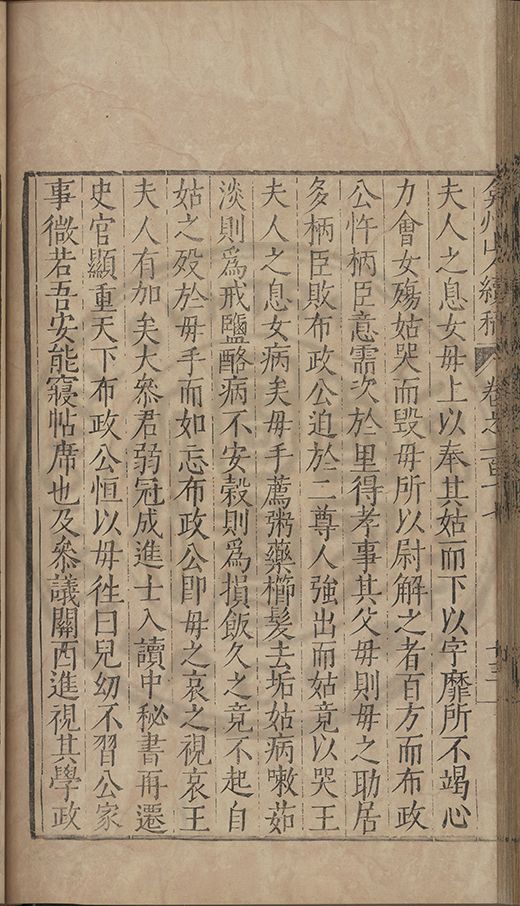 弇州山續稿 卷之一百十七 十三
夫人之息女毋上以奉其姑而下以字靡所不竭心
力會女殤姑哭而毀毋所以尉解之者百方而布政
公忤柄臣意需次於里得孝事其父毋則毋之助居
多柄臣敗布政公迫於二尊人強出而姑竟以哭王
夫人之息女病矣毋手薦粥藥櫛髮去垢姑病嗽茹
淡則爲戒鹽酪病不安穀則爲損飯久之竟不起自
姑之歿於毋手而如忘布政公卽毋之哀之視哀王
夫人有加矣大叅君弱冠成進士入讀中秘書再遷
史官顯重天下布政公恒以毋徃曰兒幼不習公家
事微若吾安能寢帖席也及叅議關西進視其學政